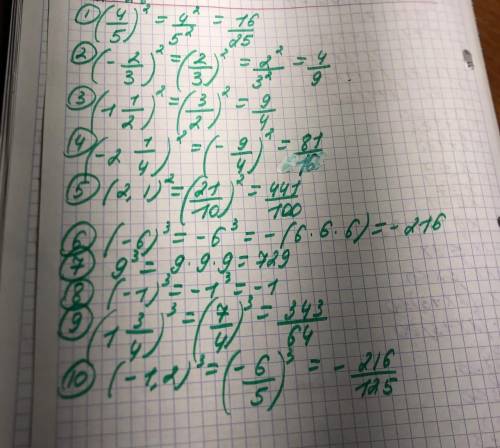 ① (4/5)² = 4²/5² = 16/25
② (-2/3)² = (2/3)² = 2²/3² = 4/9
③ (1 1/2)² = (3/2)² = 9/4
④ (-2 1/4)² = (-9/4)² = 81/16
⑤ (2,1)² = (21/10)² = 441/100
⑥ (-6)³ = -6³ = -(6·6·6) = -216
⑦ 9³ = 9·9·9 = 729
⑧ (-1)³ = -1³ = -1
⑨ (1 3/4)³ = (7/4)³ = 343/64
⑩ (-1,2)³ = (-6/5)³ = -216/125